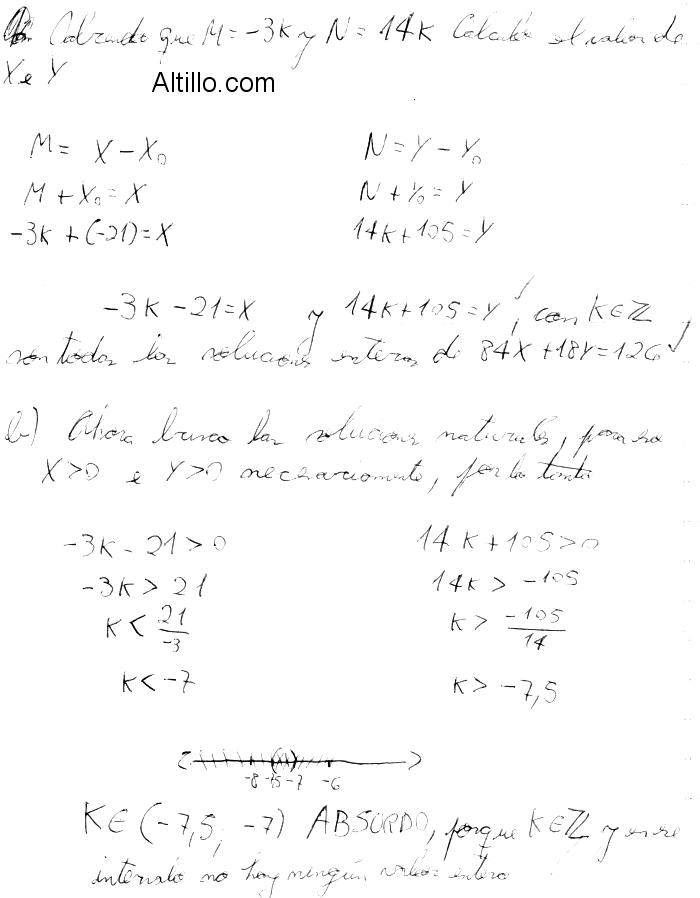 Cabiendo que M = -3K y N = 14K Calculo el valor de
X e Y
Altillo.com
M = X - X₀ N = Y - Y₀
M + X₀ = X N + Y₀ = Y
-3K + (-21) = X 14K + 105 = Y
-3K - 21 = X y 14K + 105 = Y, con K ∈ ℤ,
son todas las soluciones enteras de 84X + 18Y = 126
b) Ahora busco las soluciones naturales, para eso
X > 0 e Y > 0 necesariamente, por lo tanto
-3K - 21 > 0 14K + 105 > 0
-3K > 21 14K > -105
K < 21/-3 K > -105/14
K < -7 K > -7,5
-8 -7,5 -7 -6
K ∈ (-7,5; -7) ABSURDO, porque K ∈ ℤ y en ese
intervalo no hay ningún valor entero